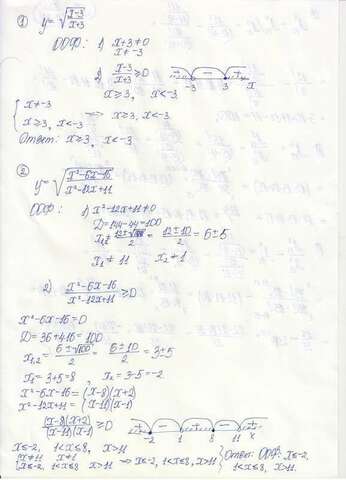 ① y=√((x-3)/(x+3))
ООФ: 1) x+3≠0
x≠-3
2) (x-3)/(x+3) ≥0
+ - +
-3 3 x
x≥3, x<-3
{ x≠-3
x≥3, x<-3 => x≥3, x<-3
Ответ: x≥3, x<-3
② y=√((x²-6x-16)/(x²-12x+11))
ООФ: 1) x²-12x+11≠0
D=144-44=100
x₁,₂≠ (12±√100)/2 = (12±10)/2 = 6±5
x₁≠11 x₂≠1
2) (x²-6x-16)/(x²-12x+11) ≥0
x²-6x-16=0
D=36+4·16=100
x₁,₂= (6±√100)/2 = (6±10)/2 = 3±5
x₁=3+5=8, x₂=3-5=-2
x²-6x-16=(x-8)(x+2)
x²-12x+11=(x-11)(x-1)
((x-8)(x+2))/((x-11)(x-1)) ≥0
+ - + - +
-2 1 8 11 x
x≤-2, 1<x≤8, x>11
{ x≠11 x≠1
x≤-2, 1<x≤8 x>11 => x≤-2, 1<x≤8, x>11
Ответ: ООФ: x≤-2,
1<x≤8, x>11